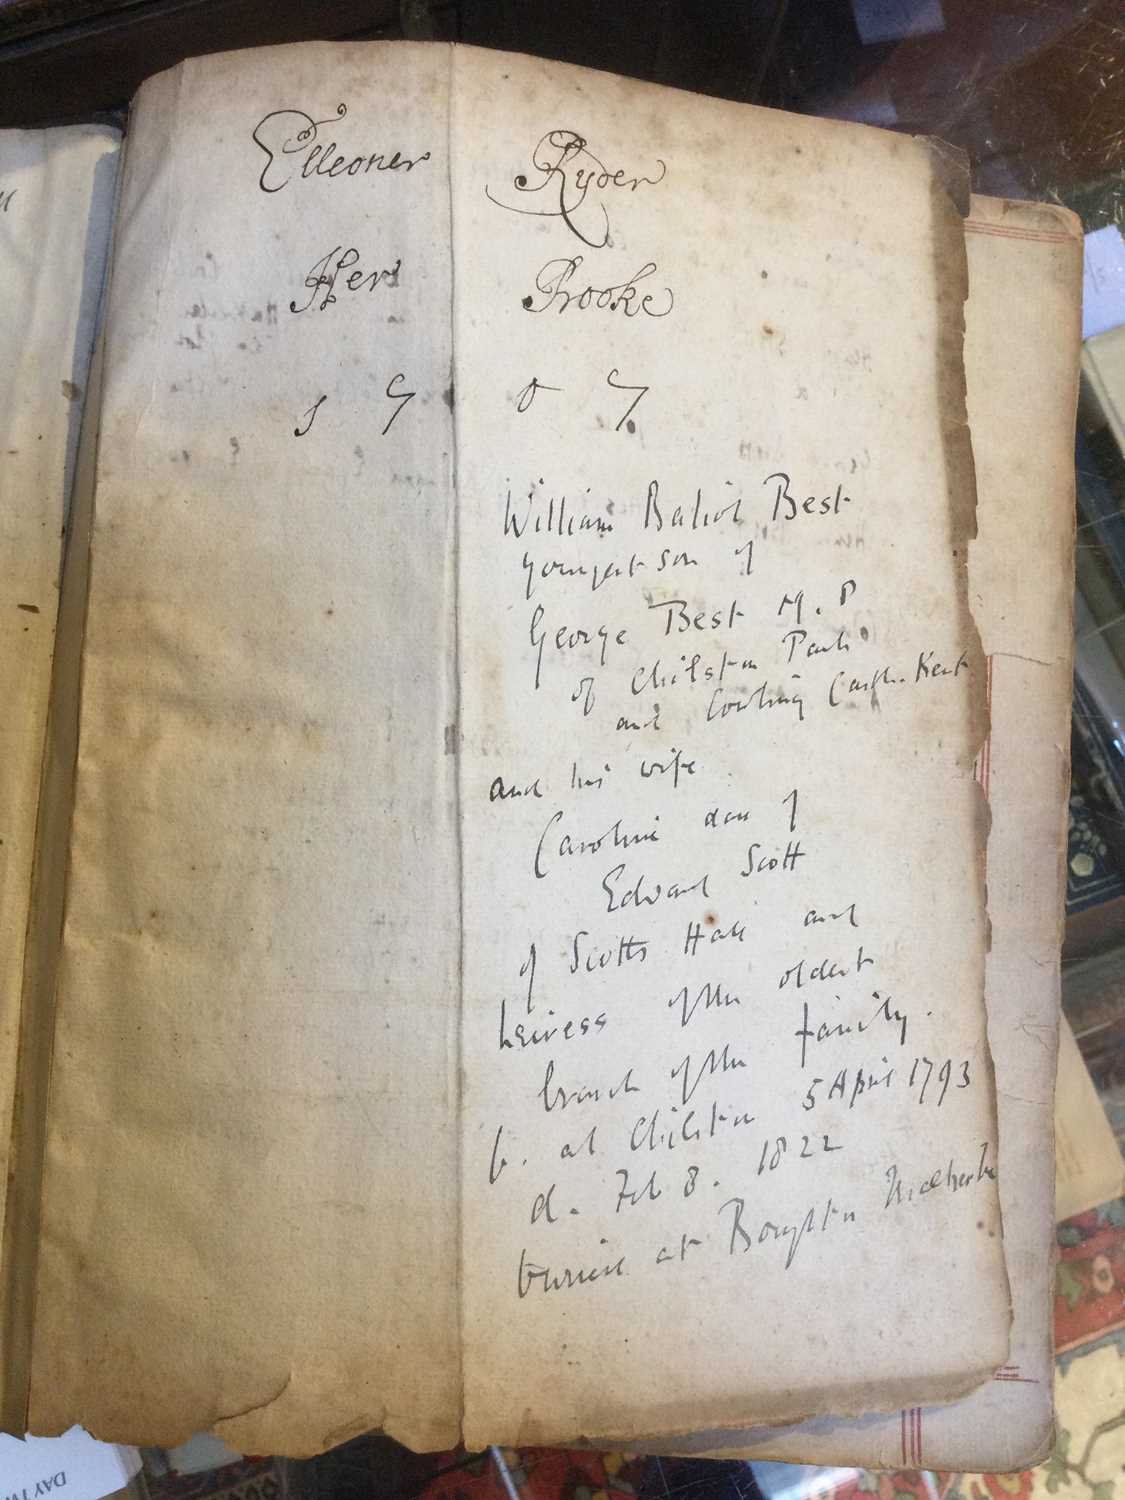 Elleoner Ryder
Her Booke
1 7 0 7
William Baliol Best
youngest son of
George Best M.P
of Chilston Park
and Cowling Castle. Kent
and his wife
Caroline dau of
Edward Scott
of Scotts Hall and
heiress of the oldest
branch of the family.
b. at Chilston 5 April 1793
d. Feb 8. 1822
buried at Boughton Malherbe
DAY TW